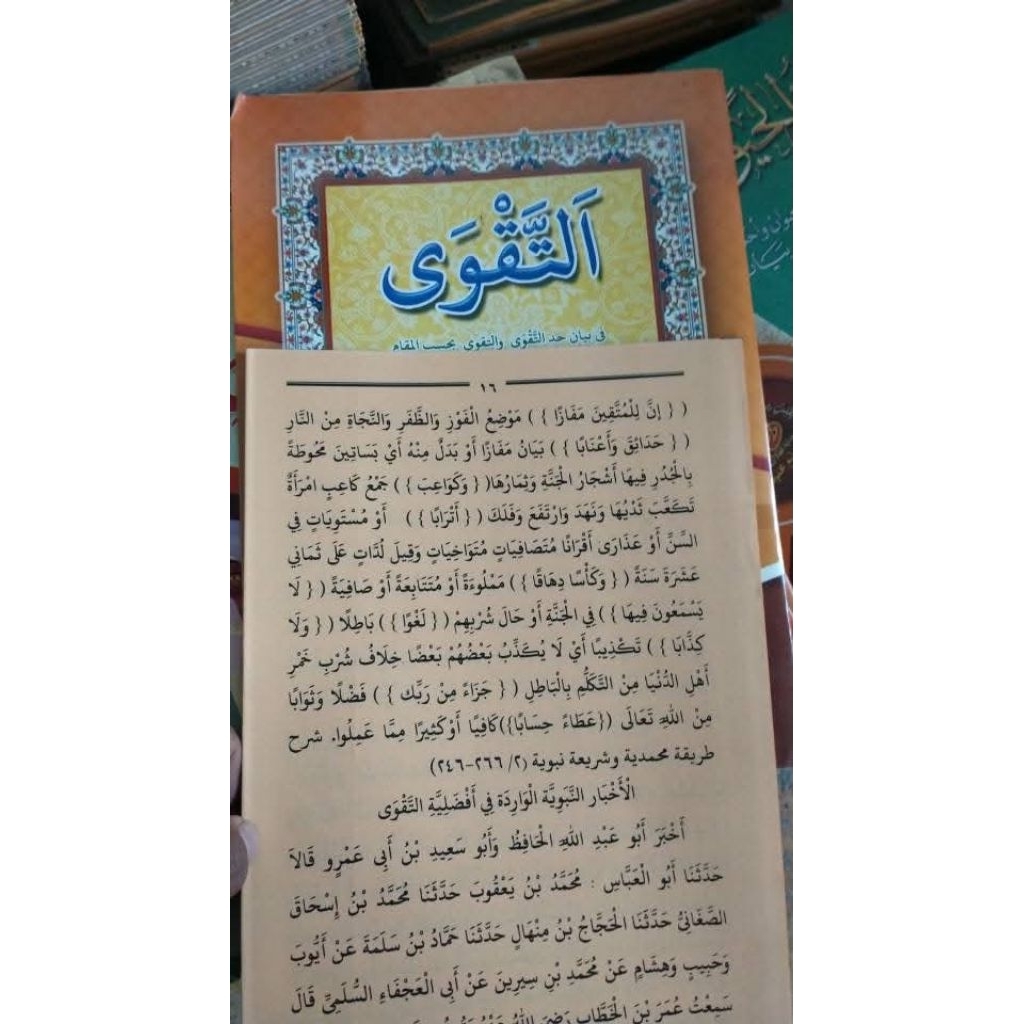 اَلتَّقْوَى
فى بيان حد التَّقْوَى والتقوى بحسب المقام
١٦
( { إِنَّ لِلْمُتَّقِينَ مَفَازًا } ) مَوْضِعُ الْفَوْزِ وَالظَّفَرِ وَالنَّجَاةِ مِنْ النَّارِ
( { حَدَائِقَ وَأَعْنَابًا } ) بَيَانُ مَفَازًا أَوْ بَدَلٌ مِنْهُ أَيْ بَسَاتِينَ مَحُوطَةً
بِالْجُدُرِ فِيهَا أَشْجَارُ الْجَنَّةِ وَثِمَارُهَا( { وَكَوَاعِبَ } ) جَمْعُ كَاعِبٍ امْرَأَةٌ
تَكَعَّبَ ثَدْيُهَا وَنَهَدَ وَارْتَفَعَ وَفَلَكَ ( { أَتْرَابًا } ) أَوْ مُسْتَوِيَاتٍ فِي
السِّنِّ أَوْ عَذَارَى أَقْرَانًا مُتَصَافِيَاتٍ مُتَوَاخِيَاتٍ وَقِيلَ لُدَّاتٍ عَلَى ثَمَانِي
عَشَرَةَ سَنَةً ( { وَكَأْسًا دِهَاقًا } ) مَمْلُوءَةً أَوْ مُتَتَابِعَةً أَوْ صَافِيَةً ( { لَا
يَسْمَعُونَ فِيهَا } ) فِي الْجَنَّةِ أَوْ حَالَ شُرْبِهِمْ ( { لَغْوًا } ) بَاطِلًا ( { وَلَا
كِذَّابًا } ) تَكْذِيبًا أَيْ لَا يُكَذِّبُ بَعْضُهُمْ بَعْضًا خِلَافُ شُرْبِ خَمْرِ
أَهْلِ الدُّنْيَا مِنْ التَّكَلُّمِ بِالْبَاطِلِ ( { جَزَاءً مِنْ رَبِّك } ) فَضْلًا وَثَوَابًا
مِنْ اللهِ تَعَالَى ({عَطَاءً حِسَابًا})كَافِيًا أَوْ كَثِيرًا مِمَّا عَمِلُوا. شرح
طريقة محمدية وشريعة نبوية (٢/ ٢٦٦-٢٤٦)
الْأَخْبَارِ النَّبَوِيَّةِ الْوَارِدَةِ فِي أَفْضَلِيَّةِ التَّقْوَى
أَخْبَرَ أَبُو عَبْدِ اللهِ الْحَافِظُ وَأَبُو سَعِيدِ بْنُ أَبِى عَمْرٍو قَالاَ
حَدَّثَنَا أَبُو الْعَبَّاسِ : مُحَمَّدُ بْنُ يَعْقُوبَ حَدَّثَنَا مُحَمَّدُ بْنُ إِسْحَاقَ
الصَّغَانِىُّ حَدَّثَنَا الْحَجَّاجُ بْنُ مِنْهَالٍ حَدَّثَنَا حَمَّادُ بْنُ سَلَمَةَ عَنْ أَيُّوبَ
وَحَبِيبٍ وَهِشَامٍ عَنْ مُحَمَّدِ بْنِ سِيرِينَ عَنْ أَبِى الْعَجْفَاءِ السُّلَمِىِّ قَالَ
سَمِعْتُ عُمَرَ بْنَ الْخَطَّابِ رَضِىَ اللهُ